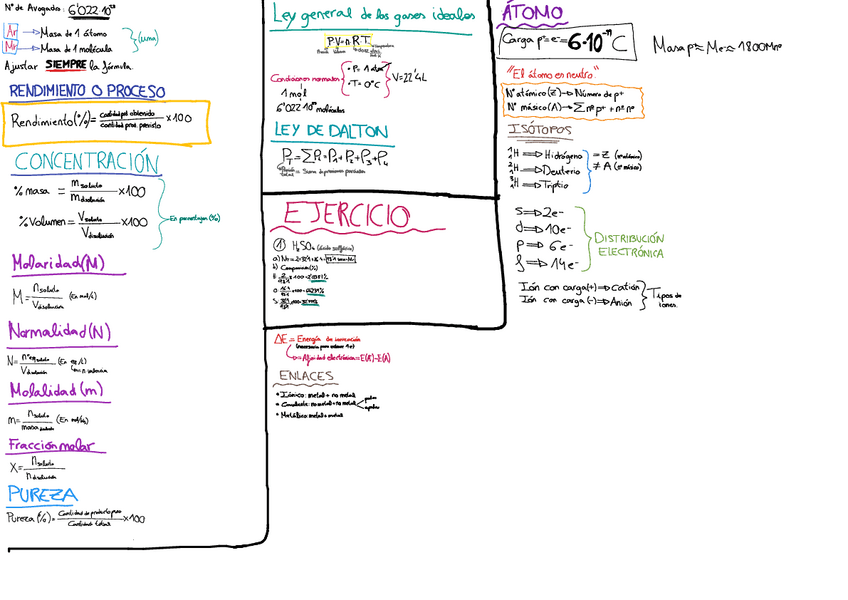 Nº de Avogadro: 6'022·10²³
Ar → Masa de 1 átomo
Mr → Masa de 1 molécula
(uma)
Ajustar SIEMPRE la fórmula.
RENDIMIENTO O PROCESO
Rendimiento(%) = cantidad prod. obtenido / cantidad prod. previsto ×100
CONCENTRACIÓN
% masa = m soluto / m disolución ×100
% Volumen = V soluto / V disolución ×100
En porcentajes (%)
Molaridad(M)
M = n soluto / V disolución (En mol/L)
Normalidad(N)
N = nº eq soluto / V disolución (En eq/L)
Molalidad(m)
m = n soluto / masa (En mol/kg)
Fracción molar
X = n soluto / n disolución
PUREZA
Pureza (%) = Cantidad de producto puro / Cantidad total ×100
Ley general de los gases ideales
P·V=n·R·T
Condiciones normales
· P= 1 atm
· T= 0ºC
V=22'4L
1 mol
6'022·10²³ moléculas
LEY DE DALTON
P_T = ΣPᵢ = P₁+P₂+P₃+P₄
Suma de presiones parciales
EJERCICIO
① H₂SO₄ (ácido sulfúrico)
b) Composición(%)
ΔE = Energía de ionización
(necesaria para extraer 1e⁻)
→ Afinidad electrónica = E(X)-E(A)
ENLACES
• Iónico: metal + no metal
• Covalente: no metal + no metal < polar
apolar
• Metálico: metal + metal
ÁTOMO
Carga p⁺= e⁻= 6·10⁻¹⁹ C
"El átomo en neutro"
Nº atómico (Z) → Número de p⁺
Nº másico (A) → Σ nº p⁺ + nº nº
ISÓTOPOS
¹H ⇒ Hidrógeno
²H ⇒ Deuterio
³H ⇒ Tritio
= Z (nº atómico)
≠ A (nº másico)
s ⇒ 2e⁻
d ⇒ 10e⁻
p ⇒ 6e⁻
f ⇒ 14e⁻
DISTRIBUCIÓN
ELECTRÓNICA
Ión con carga (+) ⇒ Catión
Ión con carga (-) ⇒ Anión
Tipos de
iones.